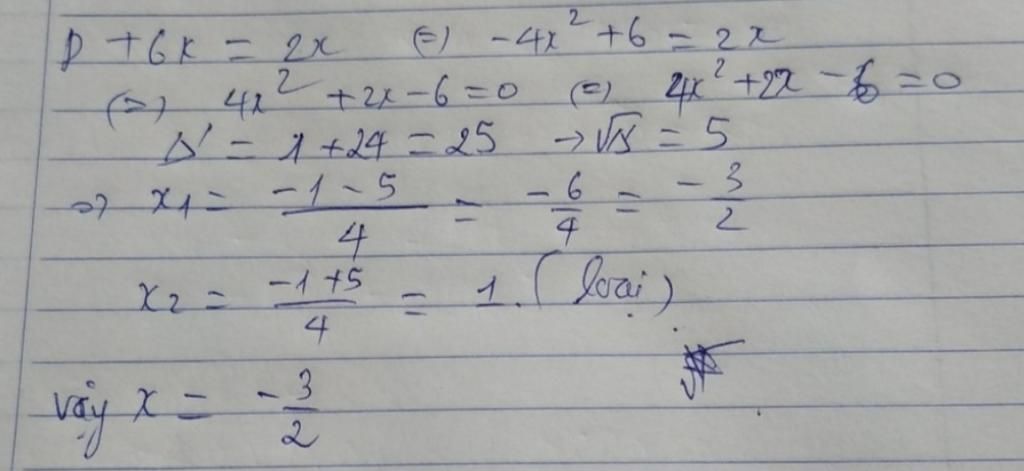 P + 6x = 2x (=) -4x² + 6 = 2x
(=) 4x² + 2x - 6 = 0 (=) 4x² + 2x - 6 = 0
Δ' = 1 + 24 = 25 → √Δ' = 5
=> x1 = (-1 - 5)/4 = -6/4 = -3/2
x2 = (-1 + 5)/4 = 1. (loại)
vậy x = -3/2